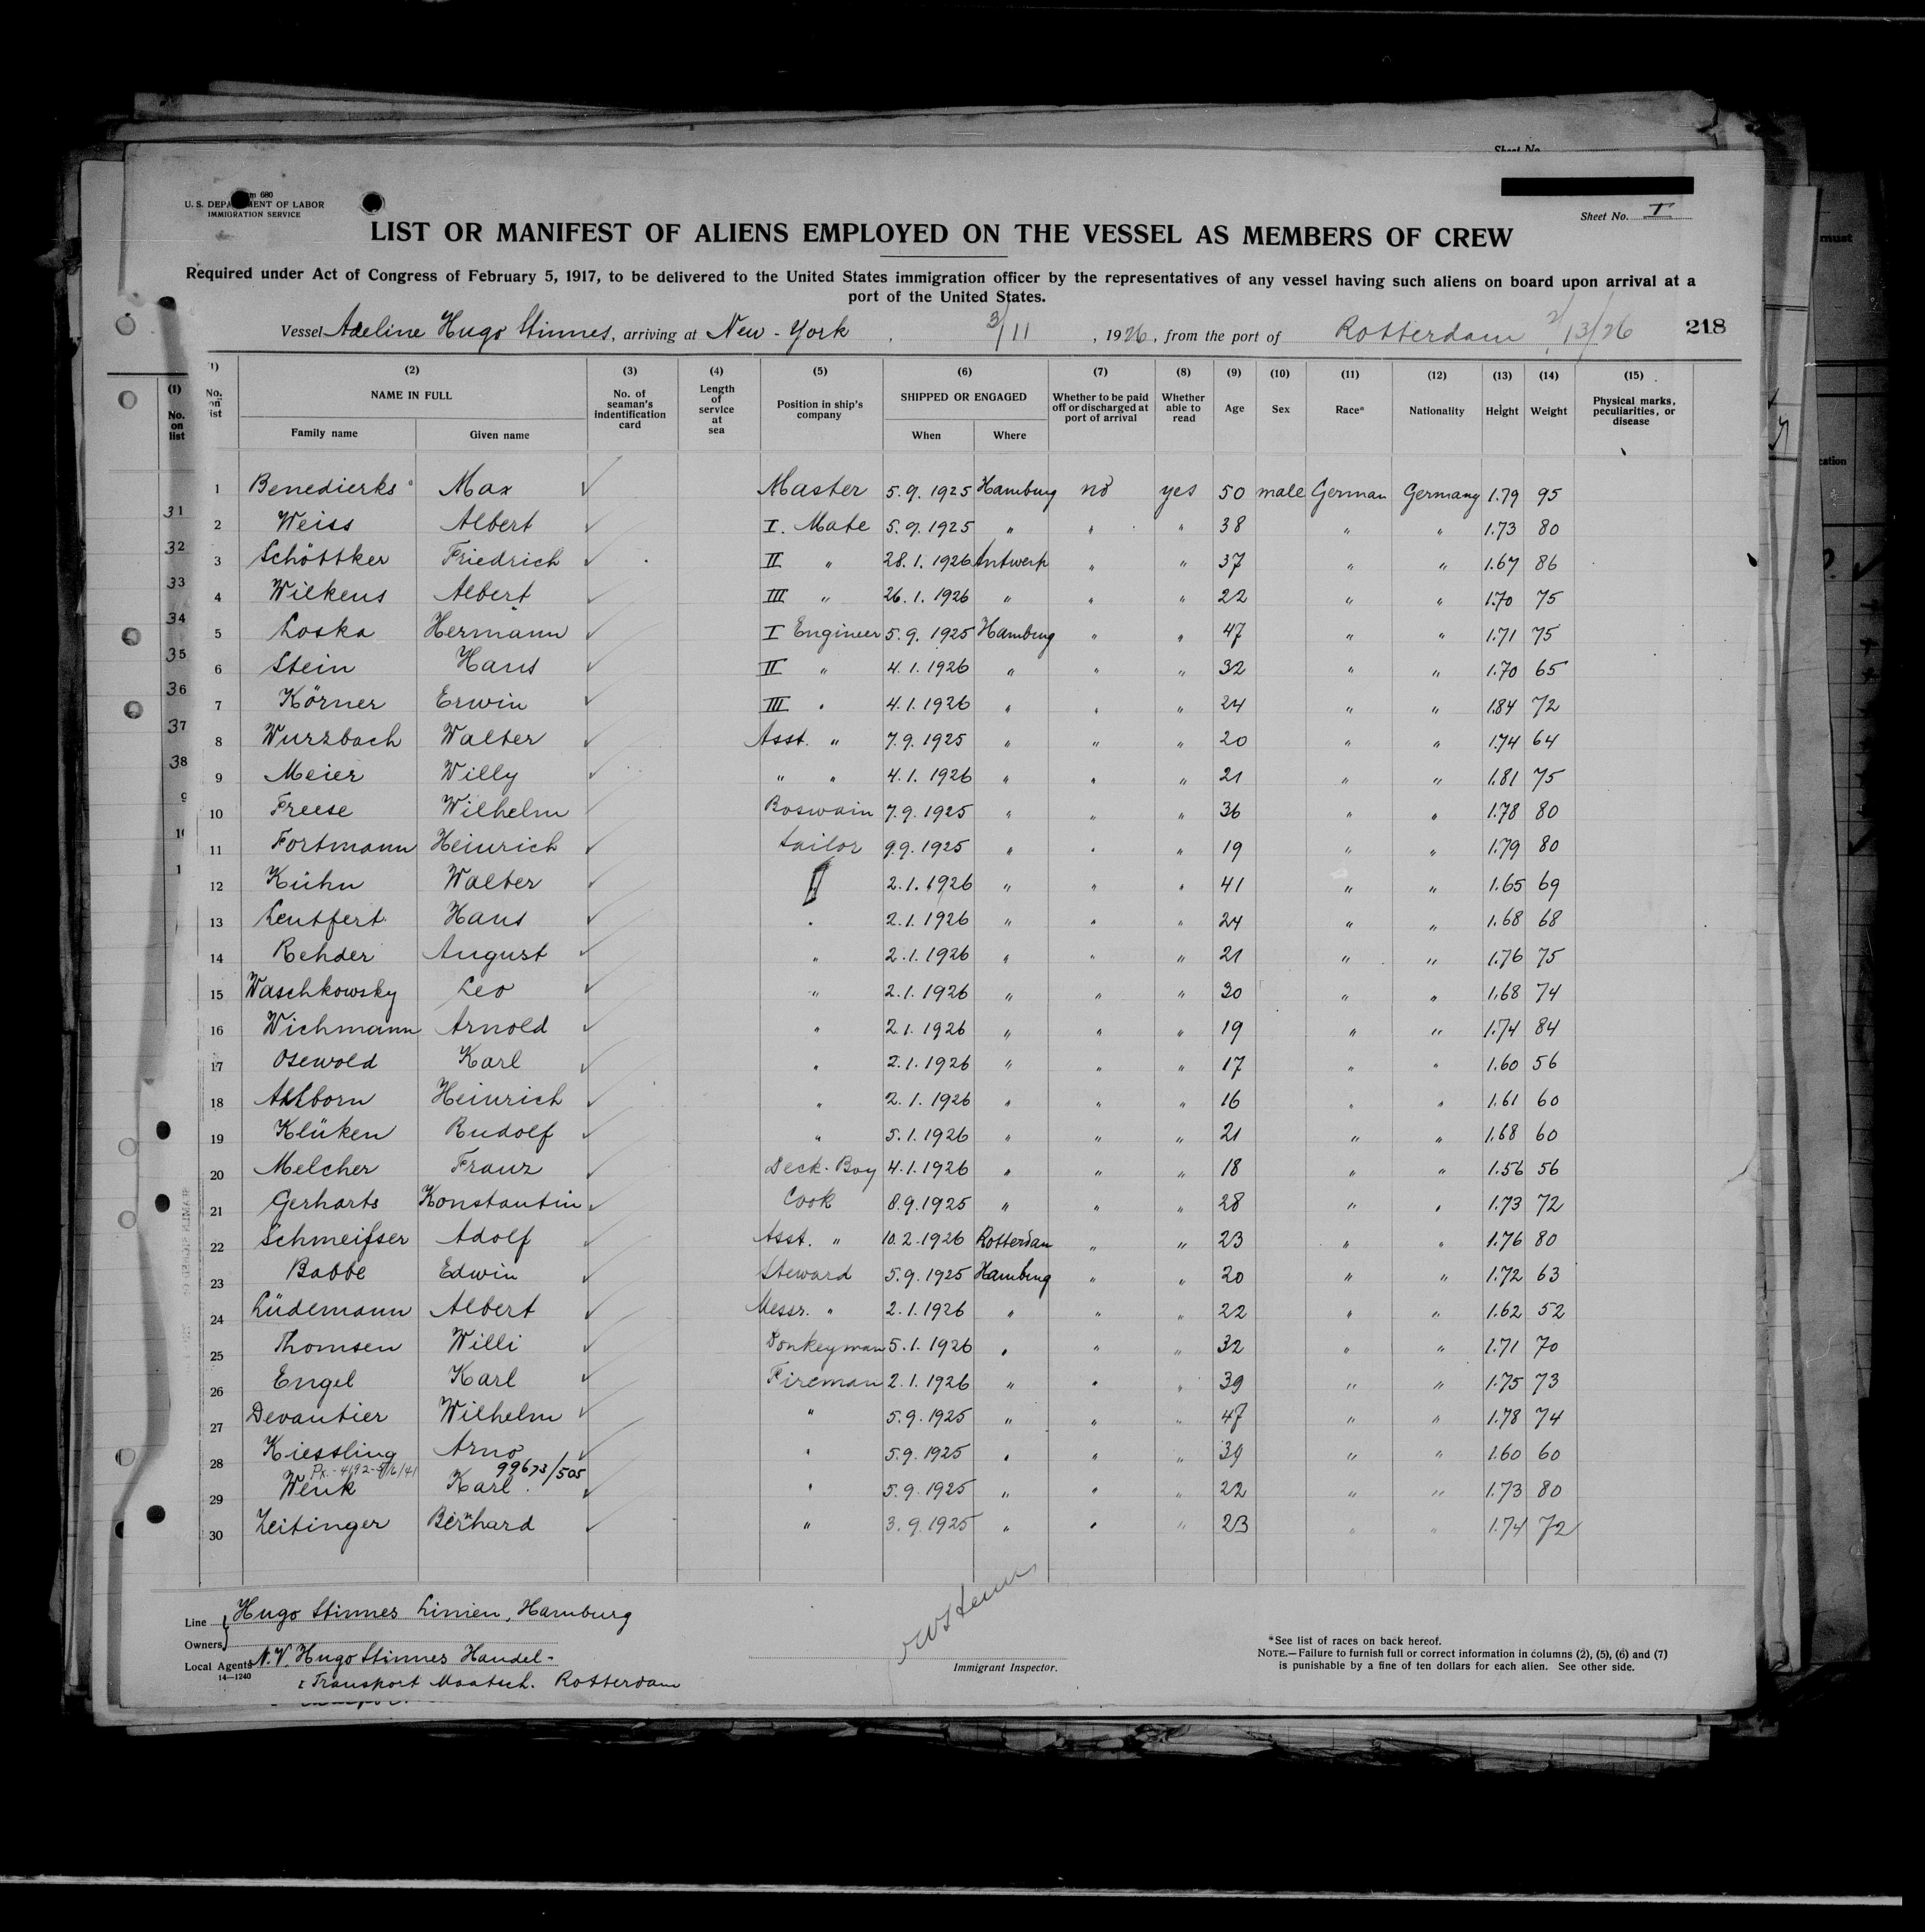 Sheet No.
680
U. S. DEPARTMENT OF LABOR
IMMIGRATION SERVICE
Sheet No. I
LIST OR MANIFEST OF ALIENS EMPLOYED ON THE VESSEL AS MEMBERS OF CREW
Required under Act of Congress of February 5, 1917, to be delivered to the United States immigration officer by the representatives of any vessel having such aliens on board upon arrival at a
port of the United States.
Vessel Adeline Hugo Stinnes, arriving at New-York 3/11, 1926, from the port of Rotterdam 2/13/26 218
(1) No. on list (2) NAME IN FULL Family name Given name (3) No. of seaman's indentification card (4) Length of service at sea (5) Position in ship's company (6) SHIPPED OR ENGAGED When Where (7) Whether to be paid off or discharged at port of arrival (8) Whether able to read (9) Age (10) Sex (11) Race* (12) Nationality (13) Height (14) Weight (15) Physical marks, peculiarities, or disease
1 Benedierks Max Master 5.9.1925 Hamburg no yes 50 male German Germany 1.79 95
2 Weiss Albert I. Mate 5.9.1925 " " " 38 " " 1.73 80
3 Schöttker Friedrich II " 28.1.1926 Antwerp " " 37 " " 1.67 86
4 Wilkens Albert III " 26.1.1926 " " " 22 " " 1.70 75
5 Loska Hermann I Engineer 5.9.1925 Hamburg " " 47 " " 1.71 75
6 Stein Hans II " 4.1.1926 " " " 32 " " 1.70 65
7 Körner Erwin III " 4.1.1926 " " " 24 " " 1.84 72
8 Wurzbach Walter Asst. " 7.9.1925 " " " 20 " " 1.74 64
9 Meier Willy " " 4.1.1926 " " " 21 " " 1.81 75
10 Freese Wilhelm Boswain 7.9.1925 " " " 36 " " 1.78 80
11 Fortmann Heinrich sailor 9.9.1925 " " " 19 " " 1.79 80
12 Kühn Walter 2.1.1926 " " " 41 " " 1.65 69
13 Leutfert Hans " 2.1.1926 " " " 24 " " 1.68 68
14 Rehder August " 2.1.1926 " " " 21 " " 1.76 75
15 Waschkowsky Leo " 2.1.1926 " " " 30 " " 1.68 74
16 Wichmann Arnold " 2.1.1926 " " " 19 " " 1.74 84
17 Osewold Karl " 2.1.1926 " " " 17 " " 1.60 56
18 Ahlborn Heinrich " 2.1.1926 " " " 16 " " 1.61 60
19 Klüken Rudolf " 5.1.1926 " " " 21 " " 1.68 60
20 Melcher Franz Deck-Boy 4.1.1926 " " " 18 " " 1.56 56
21 Gerharts Konstantin Cook 8.9.1925 " " " 28 " " 1.73 72
22 Schmeifser Adolf Asst. " 10.2.1926 Rotterdam " " 23 " " 1.76 80
23 Babbe Edwin Steward 5.9.1925 Hamburg " " 20 " " 1.72 63
24 Lüdemann Albert Messr. " 2.1.1926 " " " 22 " " 1.62 52
25 Thomsen Willi Donkeyman 5.1.1926 " " " 32 " " 1.71 70
26 Engel Karl Fireman 2.1.1926 " " " 39 " " 1.75 73
27 Devantier Wilhelm " 5.9.1925 " " " 47 " " 1.78 74
28 Kiessling Arno " 5.9.1925 " " " 39 " " 1.60 60
99673/505
29 Wenk Karl " 5.9.1925 " " " 22 " " 1.73 80
30 Zeitinger Bernhard " 3.9.1925 " " " 23 " " 1.74 72
Line Hugo Stinnes Linien, Hamburg
Owners
Local Agents N.V. Hugo Stinnes Handel-
14—1240
Transport Maatsch. Rotterdam
Immigrant Inspector.
*See list of races on back hereof.
NOTE.—Failure to furnish full or correct information in columns (2), (5), (6) and (7)
is punishable by a fine of ten dollars for each alien. See other side.
(1)
No.
on
list
31
32
33
34
35
36
37
38
must